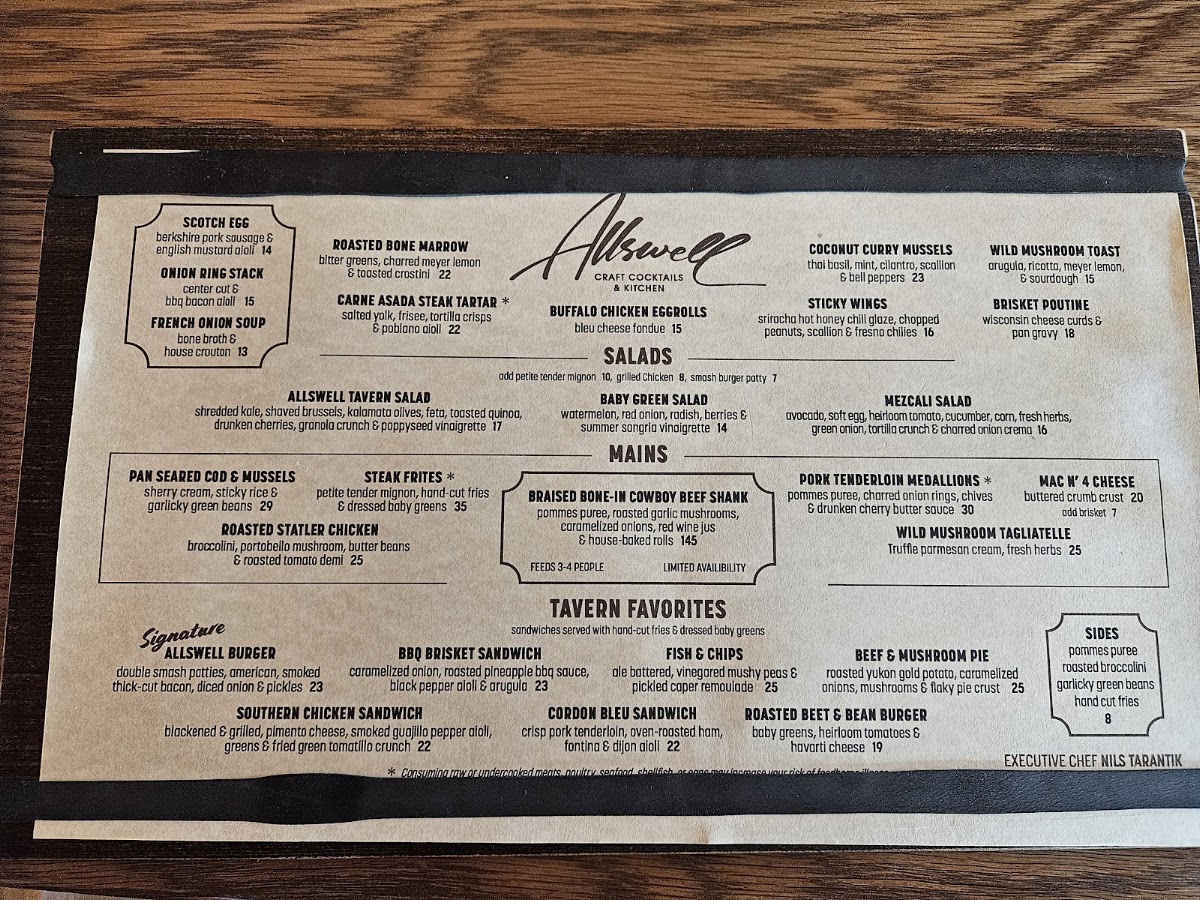 SCOTCH EGG
berkshire pork sausage &
english mustard aioli 14
ONION RING STACK
center cut &
bbq bacon aioli 15
FRENCH ONION SOUP
bone broth &
house crouton 13
ROASTED BONE MARROW
bitter greens, charred meyer lemon
& toasted crostini 22
CARNE ASADA STEAK TARTAR *
salted yolk, frisee, tortilla crisps
& poblano aioli 22
Allswell
CRAFT COCKTAILS
& KITCHEN
BUFFALO CHICKEN EGGROLLS
bleu cheese fondue 15
COCONUT CURRY MUSSELS
thai basil, mint, cilantro, scallion
& bell peppers 23
STICKY WINGS
sriracha hot honey chili glaze, chopped
peanuts, scallion & fresno chilies 16
WILD MUSHROOM TOAST
arugula, ricotta, meyer lemon,
& sourdough 15
BRISKET POUTINE
wisconsin cheese curds &
pan gravy 18
SALADS
add petite tender mignon 10, grilled Chicken 8, smash burger patty 7
ALLSWELL TAVERN SALAD
shredded kale, shaved brussels, kalamata olives, feta, toasted quinoa,
drunken cherries, granola crunch & poppyseed vinaigrette 17
BABY GREEN SALAD
watermelon, red onion, radish, berries &
summer sangria vinaigrette 14
MEZCALI SALAD
avocado, soft egg, heirloom tomato, cucumber, corn, fresh herbs,
green onion, tortilla crunch & charred onion crema 16
MAINS
PAN SEARED COD & MUSSELS
sherry cream, sticky rice &
garlicky green beans 29
STEAK FRITES *
petite tender mignon, hand-cut fries
& dressed baby greens 35
ROASTED STATLER CHICKEN
broccolini, portobello mushroom, butter beans
& roasted tomato demi 25
BRAISED BONE-IN COWBOY BEEF SHANK
pommes puree, roasted garlic mushrooms,
caramelized onions, red wine jus
& house-baked rolls 145
FEEDS 3-4 PEOPLE LIMITED AVAILIBILITY
PORK TENDERLOIN MEDALLIONS *
pommes puree, charred onion rings, chives
& drunken cherry butter sauce 30
MAC N' 4 CHEESE
buttered crumb crust 20
add brisket 7
WILD MUSHROOM TAGLIATELLE
Truffle parmesan cream, fresh herbs 25
TAVERN FAVORITES
sandwiches served with hand-cut fries & dressed baby greens
Signature
ALLSWELL BURGER
double smash patties, american, smoked
thick-cut bacon, diced onion & pickles 23
BBQ BRISKET SANDWICH
caramelized onion, roasted pineapple bbq sauce,
black pepper aioli & arugula 23
FISH & CHIPS
ale battered, vinegared mushy peas &
pickled caper remoulade 25
BEEF & MUSHROOM PIE
roasted yukon gold potato, caramelized
onions, mushrooms & flaky pie crust 25
SOUTHERN CHICKEN SANDWICH
blackened & grilled, pimento cheese, smoked guajillo pepper aioli,
greens & fried green tomatillo crunch 22
CORDON BLEU SANDWICH
crisp pork tenderloin, oven-roasted ham,
fontina & dijon aioli 22
ROASTED BEET & BEAN BURGER
baby greens, heirloom tomatoes &
havarti cheese 19
SIDES
pommes puree
roasted broccolini
garlicky green beans
hand cut fries
8
EXECUTIVE CHEF NILS TARANTIK
* Consuming raw or undercooked meats, poultry, seafood, shellfish, or eggs may increase your risk of foodborne